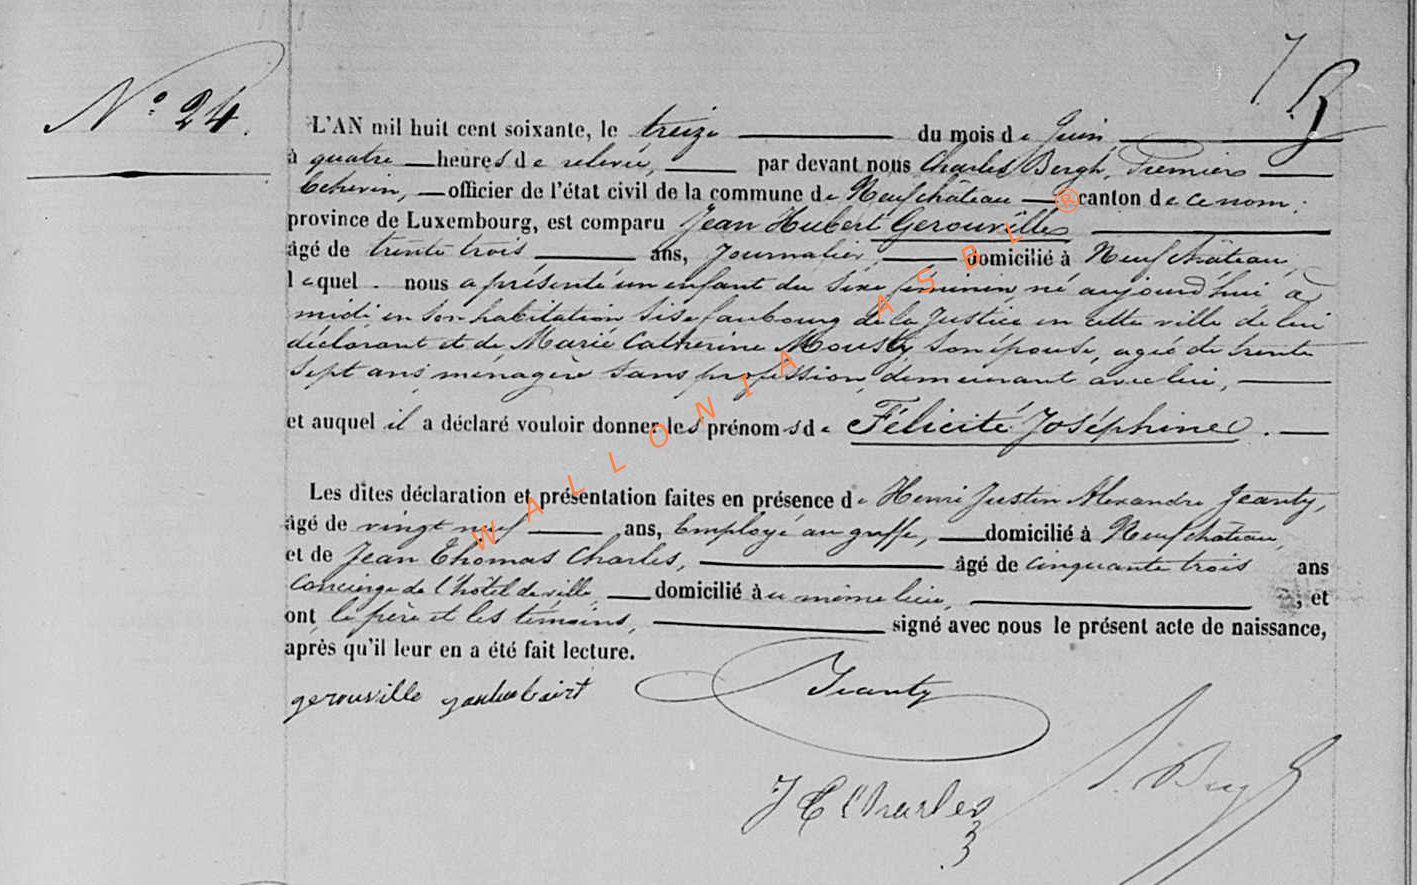 N° 24.
L'AN mil huit cent soixante, le treize du mois de Juin,
à quatre heures de relevée, par devant nous Charles Bergh, Premier
Echevin, officier de l'état civil de la commune de Neufchâteau canton de ce nom,
province de Luxembourg, est comparu Jean Hubert Gerouville
âgé de trente trois ans, Journalier, domicilié à Neufchâteau,
lequel nous a présenté un enfant du sexe féminin, né aujourd'hui à
midi, en son habitation sise faubourg de la Justice en cette ville de lui
déclarant et de Marie Catherine Mousty son épouse, agée de trente
sept ans, ménagère sans profession, demeurant avec lui,
et auquel il a déclaré vouloir donner les prénoms de Félicité Joséphine.
Les dites déclaration et présentation faites en présence de Henri Justin Alexandre Jeanty,
âgé de vingt neuf ans, Employé au greffe, domicilié à Neufchâteau,
et de Jean Thomas Charles, âgé de cinquante trois ans
Concierge de l'hôtel de ville, domicilié au même lieu, et
ont, le père et les témoins, signé avec nous le présent acte de naissance,
après qu'il leur en a été fait lecture.
gerouville Jeanty
J T Charles
Bergh
WALLONIA ASBL ®